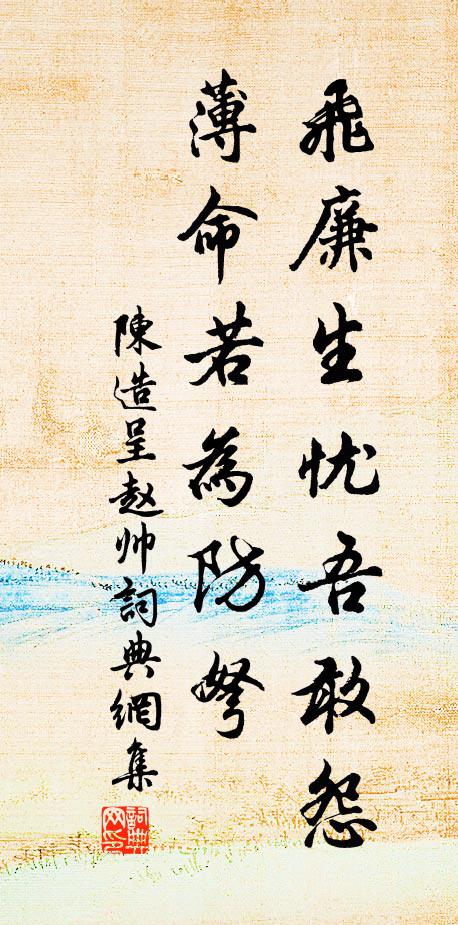 飛廉生忧吾敢怨
薄命若為防弩
陳造呈赵帅詞典網集
詞典网印